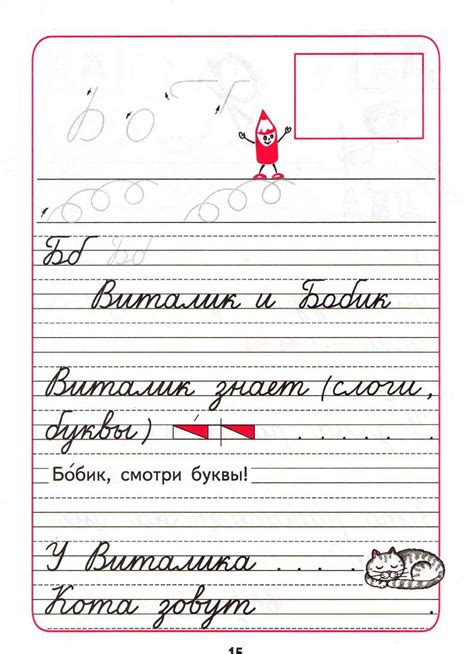 Б о Г
Бб Бб
Виталик и Бобик
Виталик знает (слоги,
буквы) . . . . .
Бо́бик, смотри буквы!
У Виталика . . . .
Кота зовут .
15